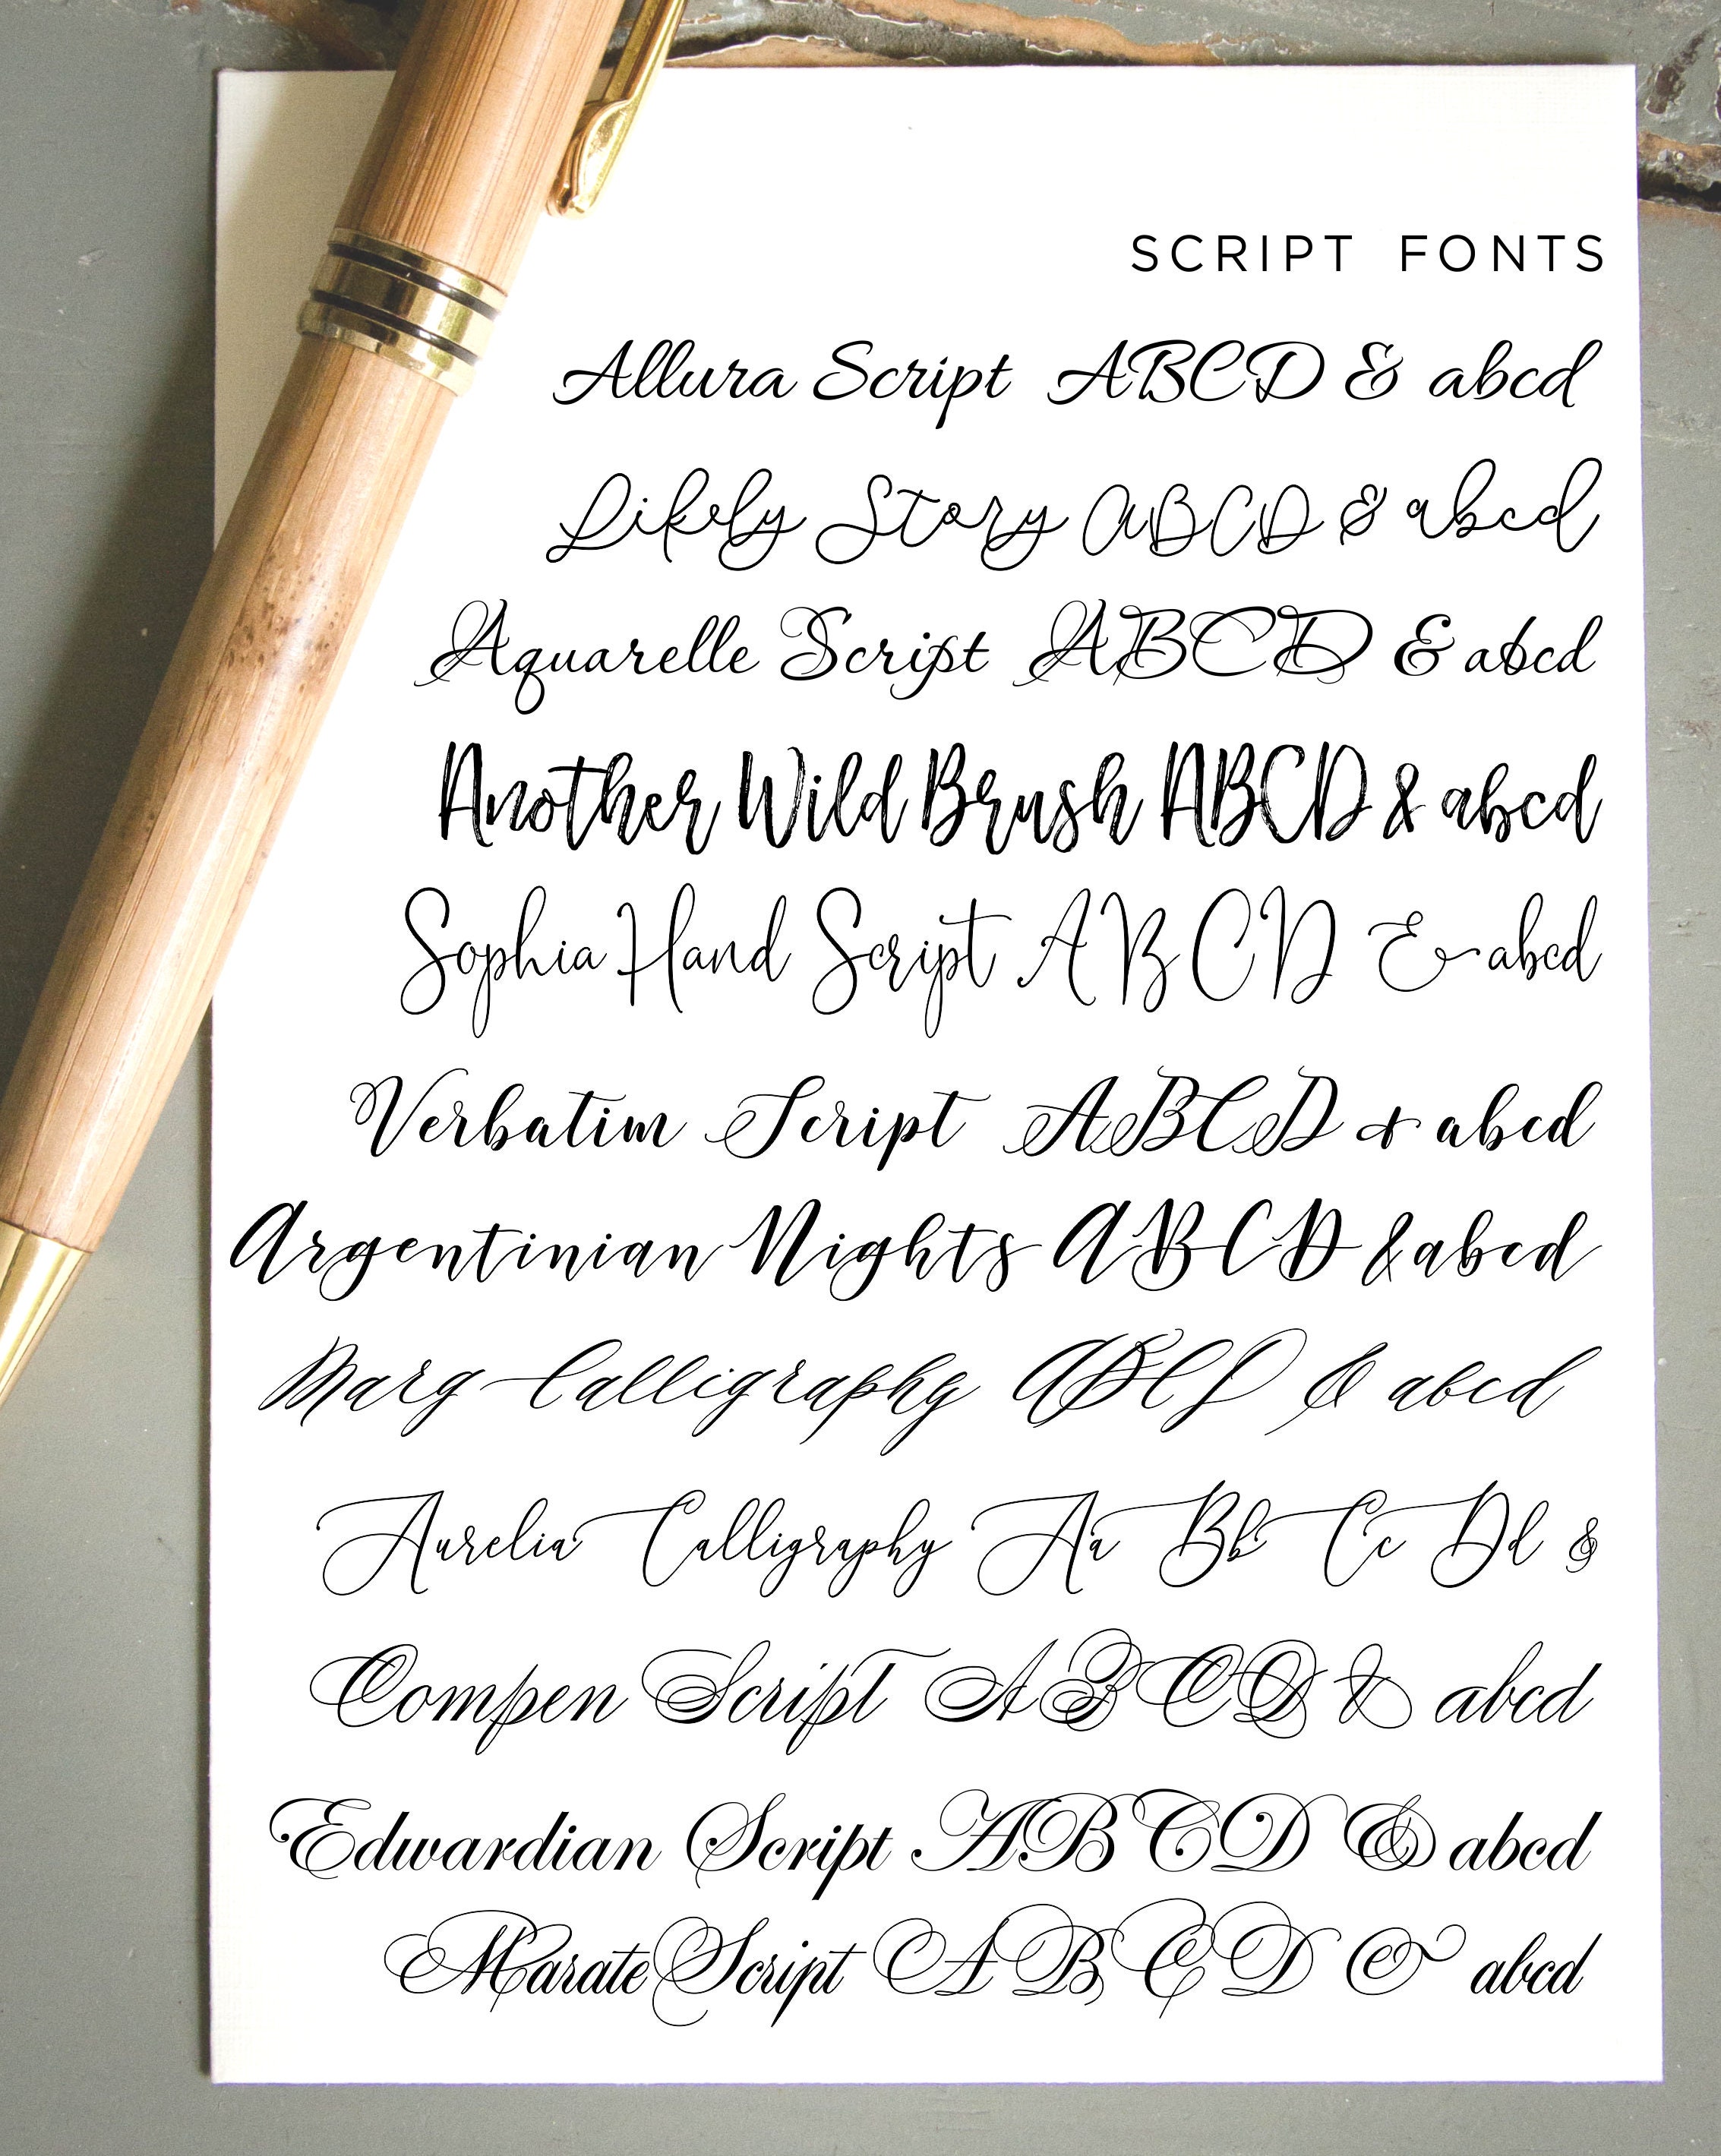 SCRIPT FONTS
Allura Script ABCD & abcd
Likely Story ABCD & abcd
Aquarelle Script ABCD & abcd
Another Wild Brush ABCD & abcd
Sophia Hand Script ABCD & abcd
Verbatim Script ABCD & abcd
Argentinian Nights ABCD & abcd
Marg Calligraphy ABCD & abcd
Aurelia Calligraphy Aa Bb Cc Dd &
Compen Script ABCD & abcd
Edwardian Script ABCD & abcd
Marate Script ABCD & abcd